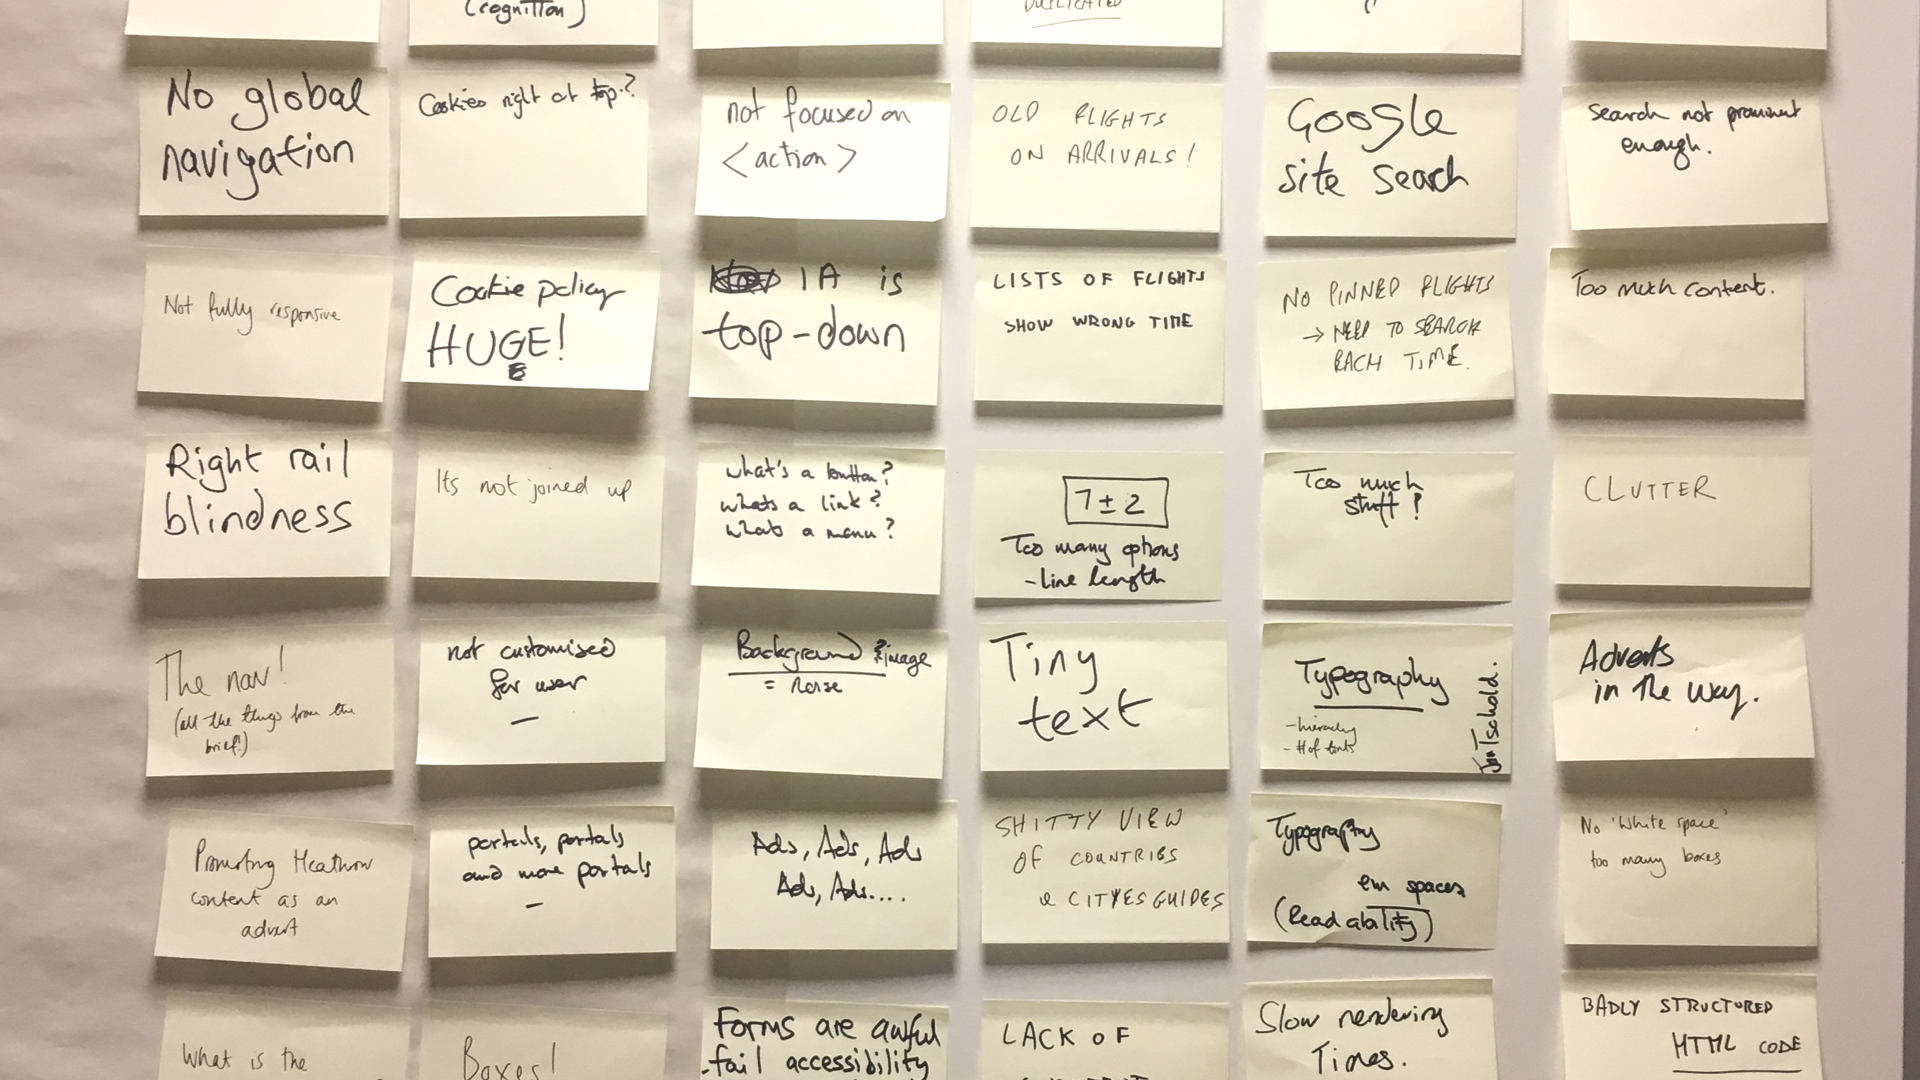 (cognition)
DUPLICATED
No global
navigation
Cookies right at top?
not focused on
<action>
OLD FLIGHTS
ON ARRIVALS!
Google
site search
Search not prominent
enough.
Not fully responsive
Cookie policy
HUGE!
IA is
top-down
LISTS OF FLIGHTS
SHOW WRONG TIME
NO PINNED FLIGHTS
→ NEED TO SEARCH
EACH TIME.
Too much content.
Right rail
blindness
Its not joined up
what's a button?
whats a link?
whats a menu?
7±2
Too many options
- line length
Too much
stuff!
CLUTTER
The nav!
(all the things from the
brief!)
not customised
for user
—
Background image
= noise
Tiny
text
Typography
- hierarchy
- # of fonts
Jan Tschold.
Adverts
in the way.
Promoting Heathrow
content as an
advert
portals, portals
and more portals
—
Ads, Ads, Ads
Ads, Ads....
SHITTY VIEW
OF COUNTRIES
& CITYES GUIDES
Typography
em spaces
(Readability)
No 'white space'
too many boxes
What is the
Boxes!
Forms are awful
-fail accessibility
LACK OF
Slow rendering
Times.
BADLY STRUCTURED
HTML CODE